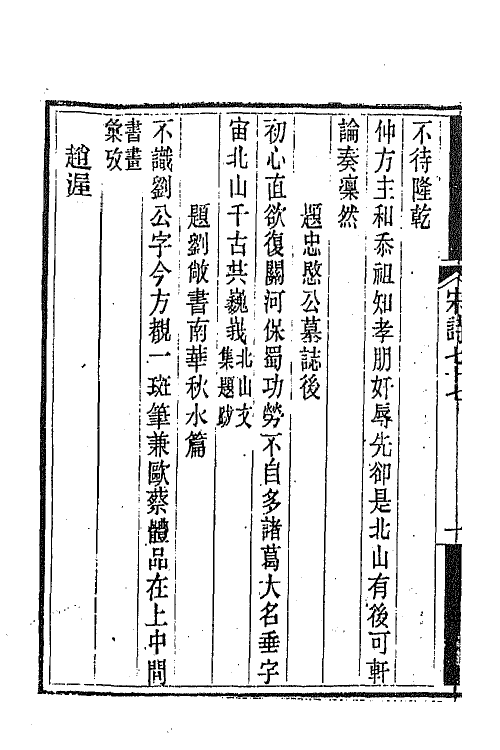 不待隆乾
仲方主和忝祖知孝朋奸辱先卻是北山有後可軒
論奏凜然
題忠愍公墓誌後
初心直欲復關河保蜀功勞不自多諸葛大名垂字
宙北山千古共巍峩北山文集題跋
題劉敞書南華秋水篇
不識劉公字今方覩一斑筆兼歐蔡體品在上中間
書畫彙攷
趙渥